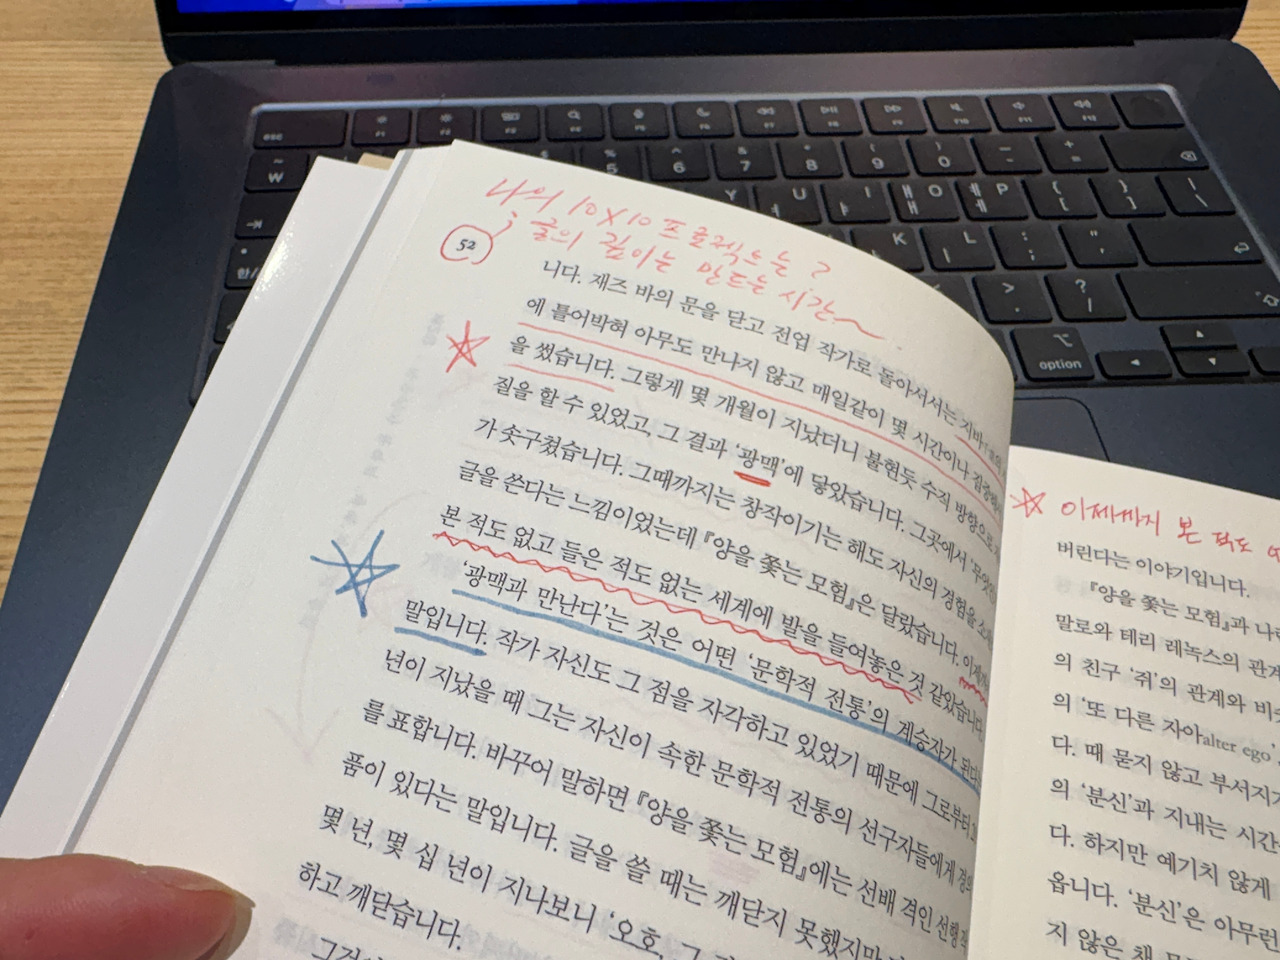 나의 10X10 프로젝트는?
; 글의 깊이는 만드는 시간~
52
니다. 재즈 바의 문을 닫고 전업 작가로 돌아서서는 지바
에 틀어박혀 아무도 만나지 않고 매일같이 몇 시간이나 집중해서
을 썼습니다. 그렇게 몇 개월이 지났더니 불현듯 수직 방향으로
질을 할 수 있었고, 그 결과 '광맥'에 닿았습니다. 그곳에서 '무엇인
가 솟구쳤습니다. 그때까지는 창작이기는 해도 자신의 경험을 소
글을 쓴다는 느낌이었는데 『양을 쫓는 모험』은 달랐습니다. 이제까
본 적도 없고 들은 적도 없는 세계에 발을 들여놓은 것 같았습니다.
'광맥과 만난다'는 것은 어떤 '문학적 전통'의 계승자가 된다
말입니다. 작가 자신도 그 점을 자각하고 있었기 때문에 그로부터
년이 지났을 때 그는 자신이 속한 문학적 전통의 선구자들에게 경의
를 표합니다. 바꾸어 말하면 『양을 쫓는 모험』에는 선배 격인 선행
품이 있다는 말입니다. 글을 쓸 때는 깨닫지 못했지만
몇 년, 몇 십 년이 지나보니 '오호, 그
하고 깨닫습니다.
이제까지 본 적도
버린다는 이야기입니다.
『양을 쫓는 모험』과 나
말로와 테리 레녹스의 관계
의 친구 '쥐'의 관계와 비
의 '또 다른 자아alter ego'
다. 때 묻지 않고 부서지기
의 '분신'과 지내는 시간
다. 하지만 예기치 않게
옵니다. '분신'은 아무런
지 않은 채
esc
F1
F2
F3
F4
F5
F6
F7
F8
F9
F10
F11
F12
~
₩
%
5
^
6
&
7
*
8
(
9
)
0
_
-
+
=
Y
U
ㅕ
I
ㅑ
O
ㅐ
ㅒ
P
ㅔ
ㅖ
{
[
}
]
|
\
K
L
:
;
"
'
>
.
?
/
한/
option